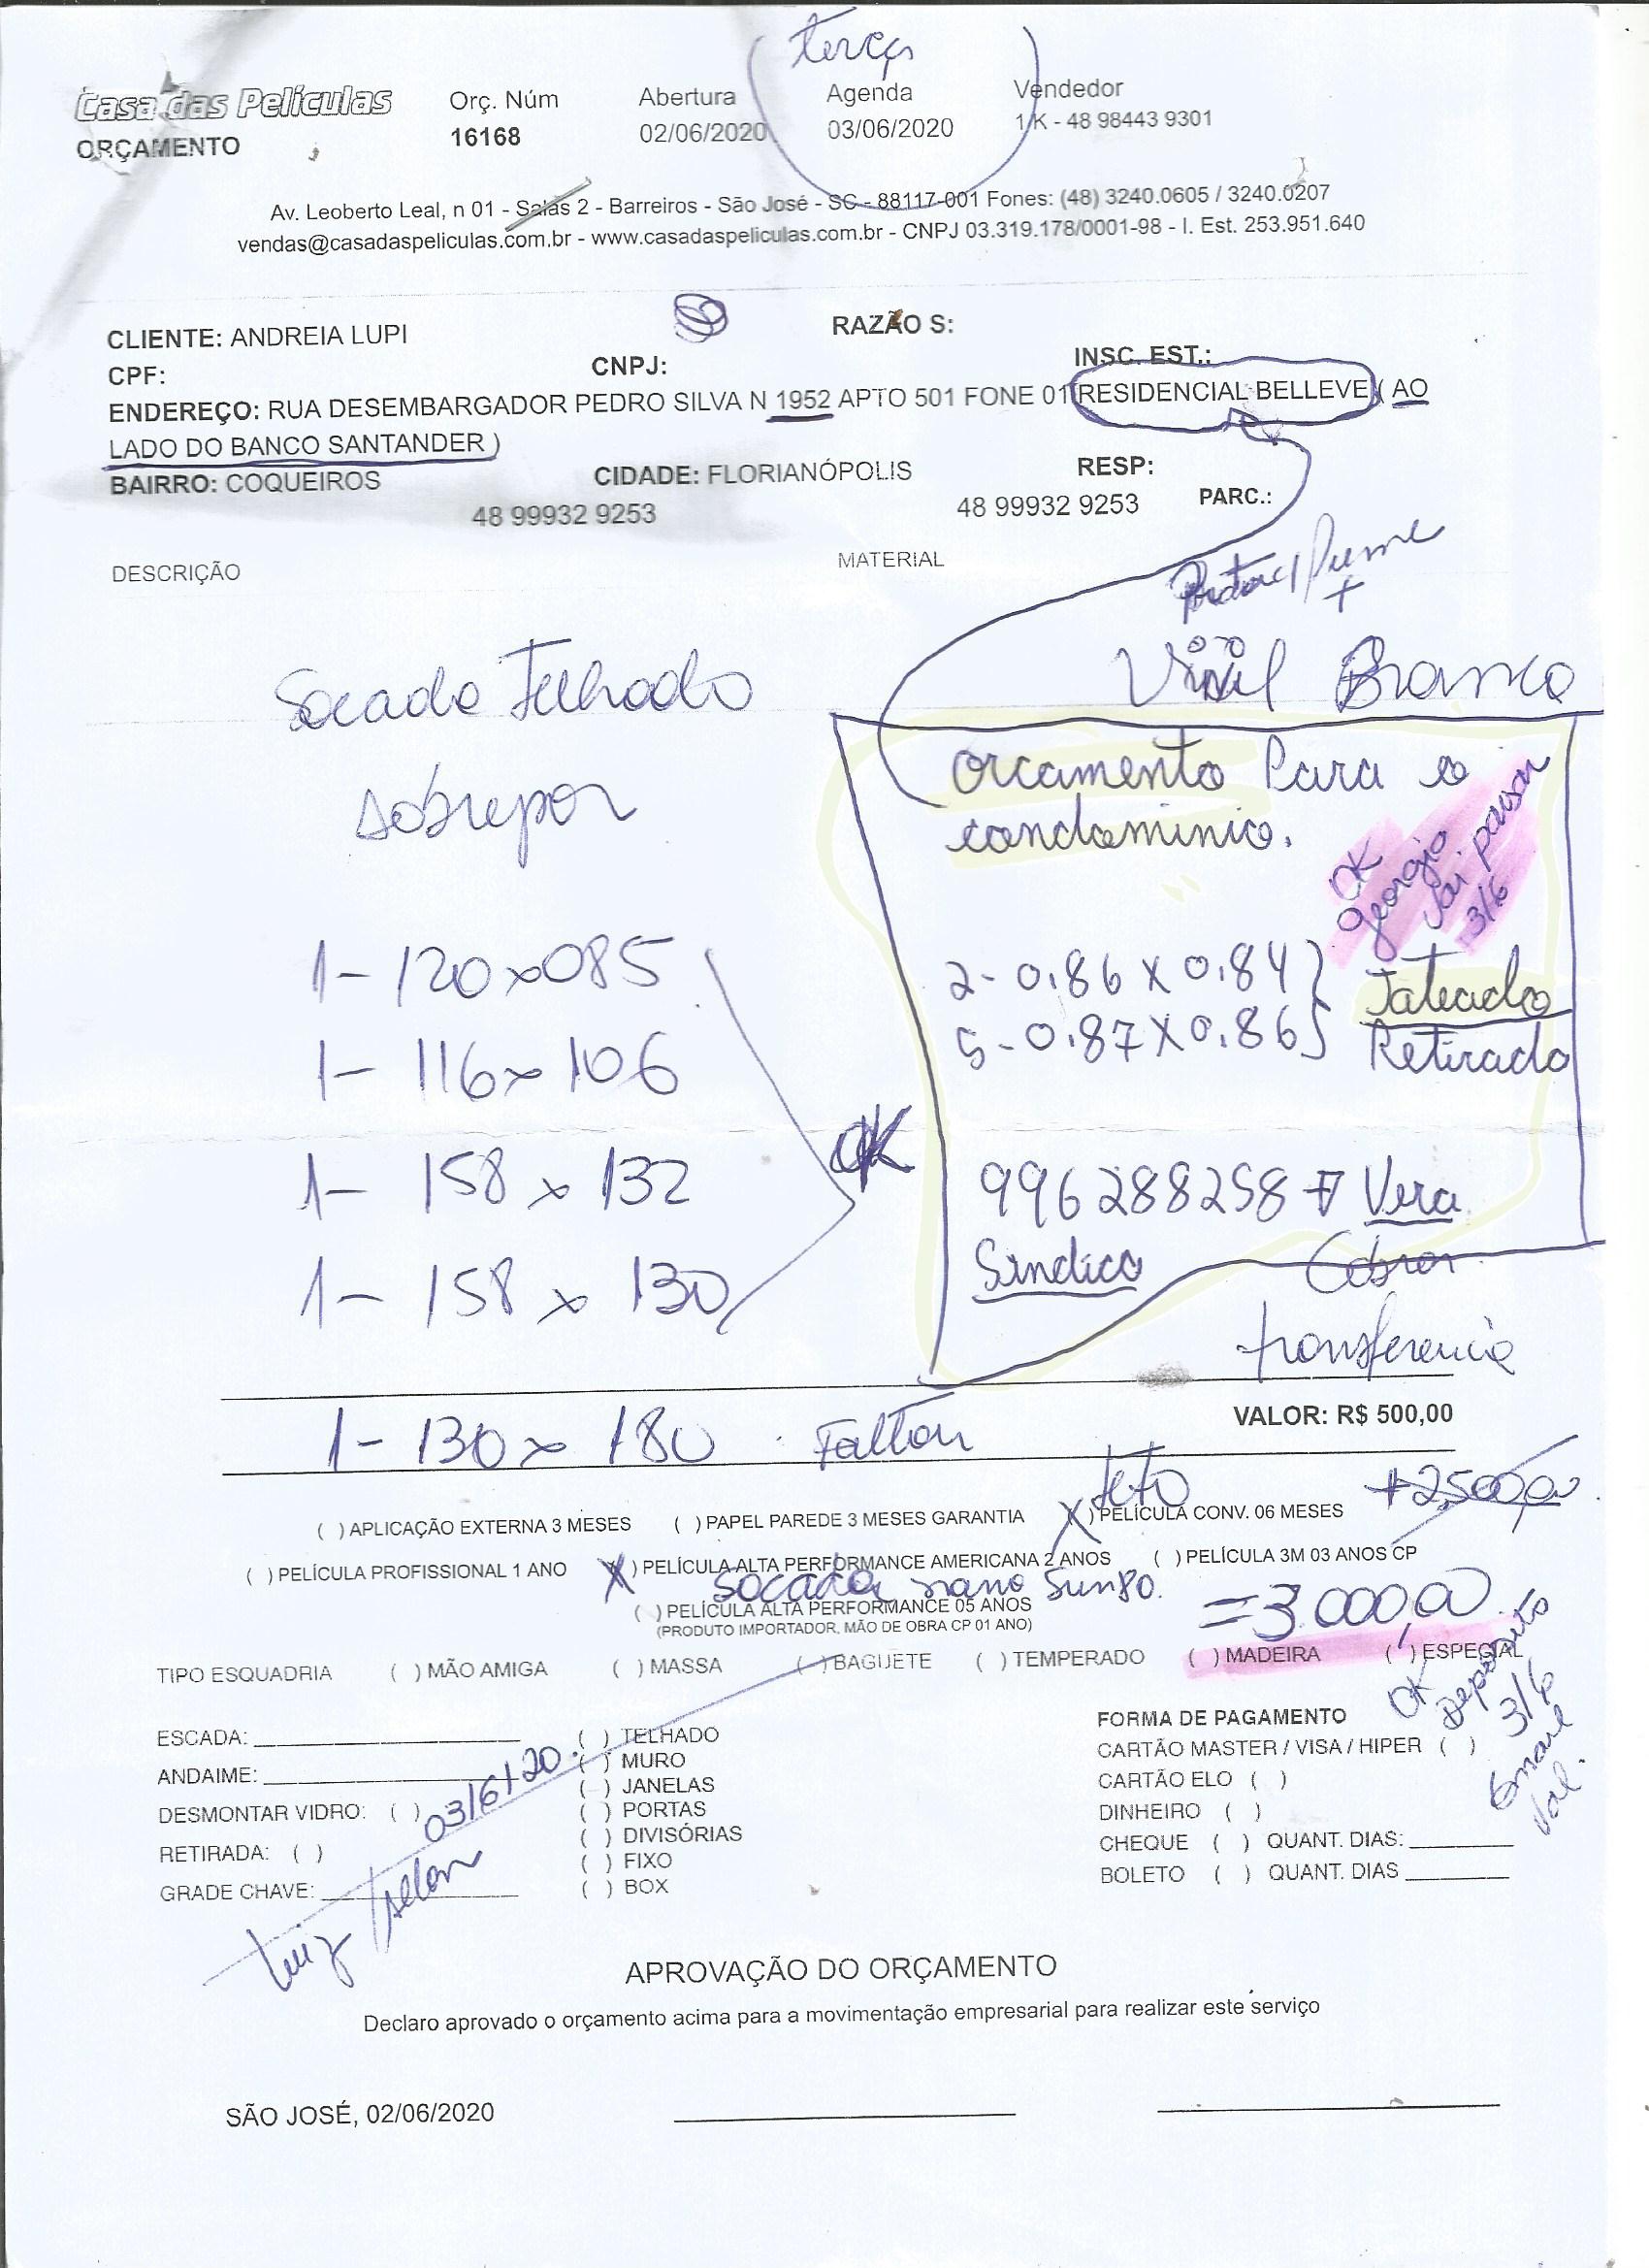 terça
Casa das Películas
ORÇAMENTO
Orç. Núm
16168
Abertura
02/06/2020
Agenda
03/06/2020
Vendedor
1/K - 48 98443 9301
Av. Leoberto Leal, n 01 - Salas 2 - Barreiros - São José - SC - 88117-001 Fones: (48) 3240.0605 / 3240.0207
vendas@casadaspeliculas.com.br - www.casadaspeliculas.com.br - CNPJ 03.319.178/0001-98 - I. Est. 253.951.640
CLIENTE: ANDREIA LUPI
RAZÃO S:
CPF:
CNPJ:
INSC. EST.:
ENDEREÇO: RUA DESEMBARGADOR PEDRO SILVA N 1952 APTO 501 FONE 01 RESIDENCIAL BELLEVE ( AO
LADO DO BANCO SANTANDER )
BAIRRO: COQUEIROS
CIDADE: FLORIANÓPOLIS
RESP:
48 99932 9253
48 99932 9253
PARC.:
DESCRIÇÃO
MATERIAL
+
Vinil Branco
Sacada Telhado
sobrepor
orcamento Para o
condominio.
OK
georgio
vai passar
3/6
1- 120x085
1- 116x106
1- 158 x 132
1- 158 x 130
OK
2- 0.86 x 0.84
5- 0.87 x 0.86
Jateado
Retirado
996288258 Vera
Sindica
Cobrar
transferencia
1- 130 x 180 . Faltou
VALOR: R$ 500,00
teto
+2.500,00
( ) APLICAÇÃO EXTERNA 3 MESES
( ) PAPEL PAREDE 3 MESES GARANTIA
(X) PELÍCULA CONV. 06 MESES
( ) PELÍCULA PROFISSIONAL 1 ANO
(X) PELÍCULA ALTA PERFORMANCE AMERICANA 2 ANOS
( ) PELÍCULA 3M 03 ANOS CP
sacada nano Sun80.
= 3.000,00
( ) PELÍCULA ALTA PERFORMANCE 05 ANOS
(PRODUTO IMPORTADOR, MÃO DE OBRA CP 01 ANO)
TIPO ESQUADRIA
( ) MÃO AMIGA
( ) MASSA
( ) BAGUETE
( ) TEMPERADO
( ) MADEIRA
( ) ESPECIAL
OK
Deposito
3/6
ESCADA:
ANDAIME:
DESMONTAR VIDRO: ( )
RETIRADA: ( )
GRADE CHAVE:
03/6/20
Luiz
( ) TELHADO
( ) MURO
( ) JANELAS
( ) PORTAS
( ) DIVISÓRIAS
( ) FIXO
( ) BOX
FORMA DE PAGAMENTO
CARTÃO MASTER / VISA / HIPER ( )
CARTÃO ELO ( )
DINHEIRO ( )
CHEQUE ( ) QUANT. DIAS:
BOLETO ( ) QUANT. DIAS
APROVAÇÃO DO ORÇAMENTO
Declaro aprovado o orçamento acima para a movimentação empresarial para realizar este serviço
SÃO JOSÉ, 02/06/2020